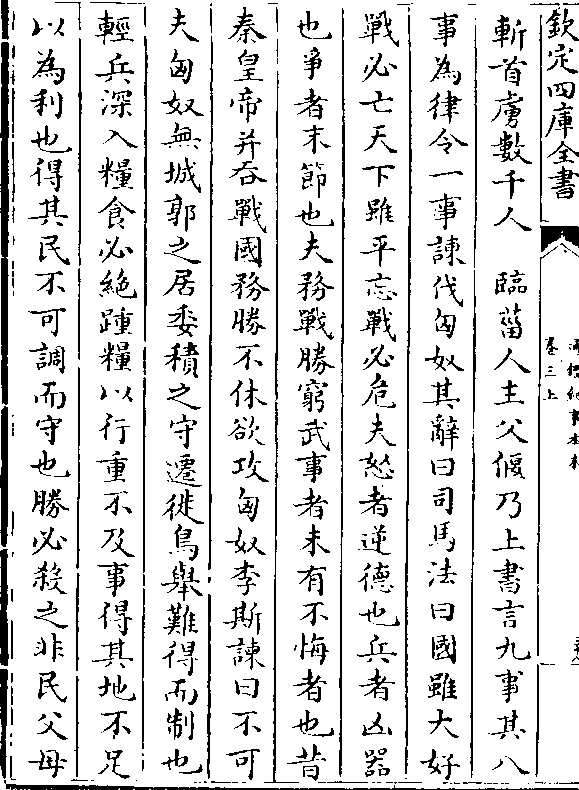 欽定四庫全書
卷三上
斬首虜數千人　臨菑人主父偃乃上書言九事其八
事為律令一事諫伐匈奴其辭曰司馬法曰國雖大好
戰必亡天下雖平忘戰必危夫怒者逆德也兵者凶器
也爭者末節也夫務戰勝窮武事者未有不悔者也昔
秦皇帝并吞戰國務勝不休欲攻匈奴李斯諫曰不可
夫匈奴無城郭之居委積之守遷徙鳥舉難得而制也
輕兵深入糧食必絶踵糧以行重不及事得其地不足
以為利也得其民不可調而守也勝必殺之非民父母